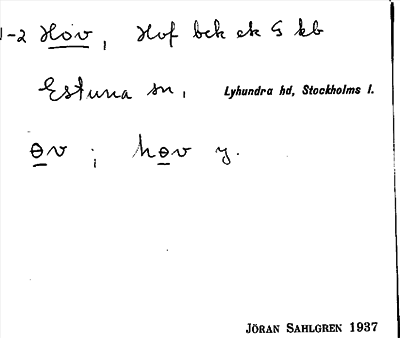 1-2 Hov, Hof bck ek S kb
Estuna sn, Lyhundra hd, Stockholms l.
ɵv ; hɵv y.
JÖRAN SAHLGREN 1937